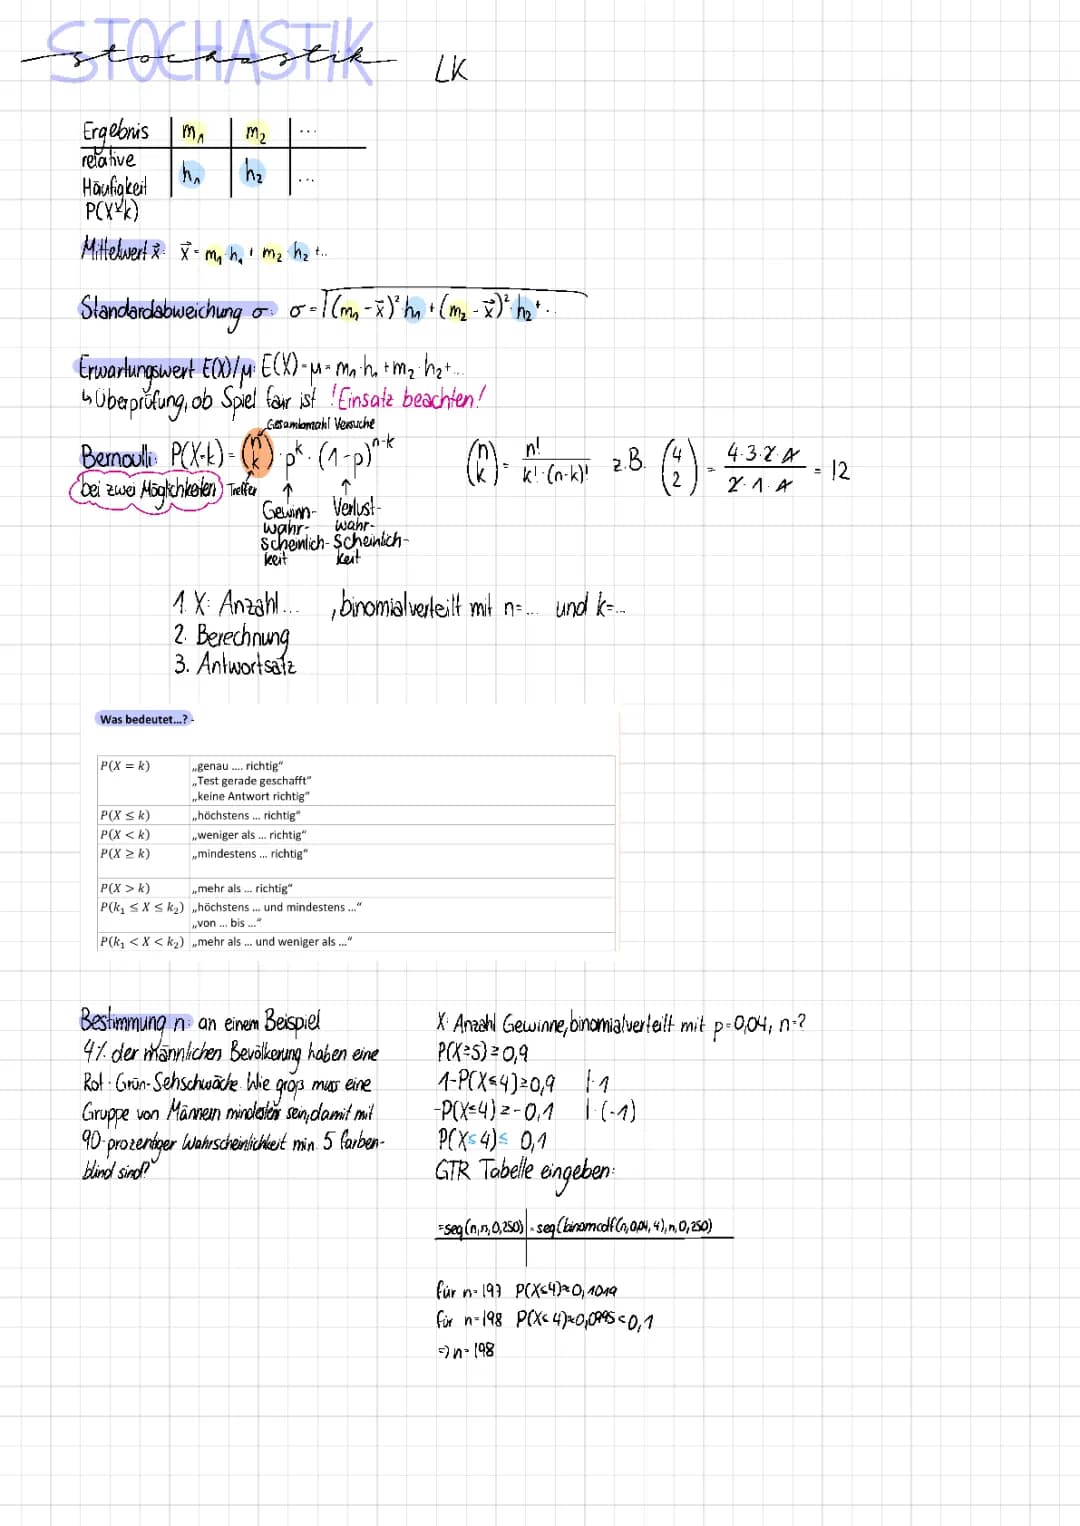 STOCHASTIK
stochastik LK
Ergebnis m₁ m₂ ...
relative Häufigkeit h₁ h₂ ...
P(X=k)
Mittelwert x̄: x̄ = m₁·h₁ + m₂·h₂ + ..
Standardabweichung σ: σ = √(m₁-x̄)²·h₁ + (m₂-x̄)²·h₂ + ..
Erwartungswert E(X)/μ: E(X)=μ= m₁·h₁ + m₂·h₂ + ...
↳ Überprüfung, ob Spiel fair ist !Einsatz beachten!
Gesamtanzahl Versuche
Bernoulli: P(X=k) = (n k) · p^k · (1-p)^n-k
(n k) = n! / k!·(n-k)! z.B. (4 2) = 4·3·2·1 / 2·1·1 = 12
bei zwei Möglichkeiten Treffer
Gewinn- Verlust-
wahr- wahr-
scheinlich- Scheinlich-
keit keit
1. X: Anzahl... , binomialverteilt mit n=... und k=...
2. Berechnung
3. Antwortsatz
Was bedeutet...? -
P(X = k) „genau .... richtig“
„Test gerade geschafft“
„keine Antwort richtig“
P(X ≤ k) „höchstens ... richtig“
P(X < k) „weniger als ... richtig“
P(X ≥ k) „mindestens ... richtig“
P(X > k) „mehr als ... richtig“
P(k₁ ≤ X ≤ k₂) „höchstens ... und mindestens ...“
„von ... bis ...“
P(k₁ < X < k₂) „mehr als ... und weniger als ...“
Bestimmung n: an einem Beispiel
4% der männlichen Bevölkerung haben eine
Rot-Grün-Sehschwäche. Wie groß muss eine
Gruppe von Männern mindestens sein, damit mit
90-prozentiger Wahrscheinlichkeit min. 5 farben-
blind sind?
X: Anzahl Gewinne, binomialverteilt mit p=0,04, n=?
P(X≥5) ≥ 0,9
1-P(X≤4) ≥ 0,9 |-1
-P(X≤4) ≥ -0,1 |·(-1)
P(X≤4) ≤ 0,1
GTR Tabelle eingeben:
=seq(n,n,0,250) =seq(binomcdf(n,0,04,4),n,0,250)
für n=197 P(X≤4)≈0,1019
für n=198 P(X≤4)≈0,0995<0,1
⇒ n=198